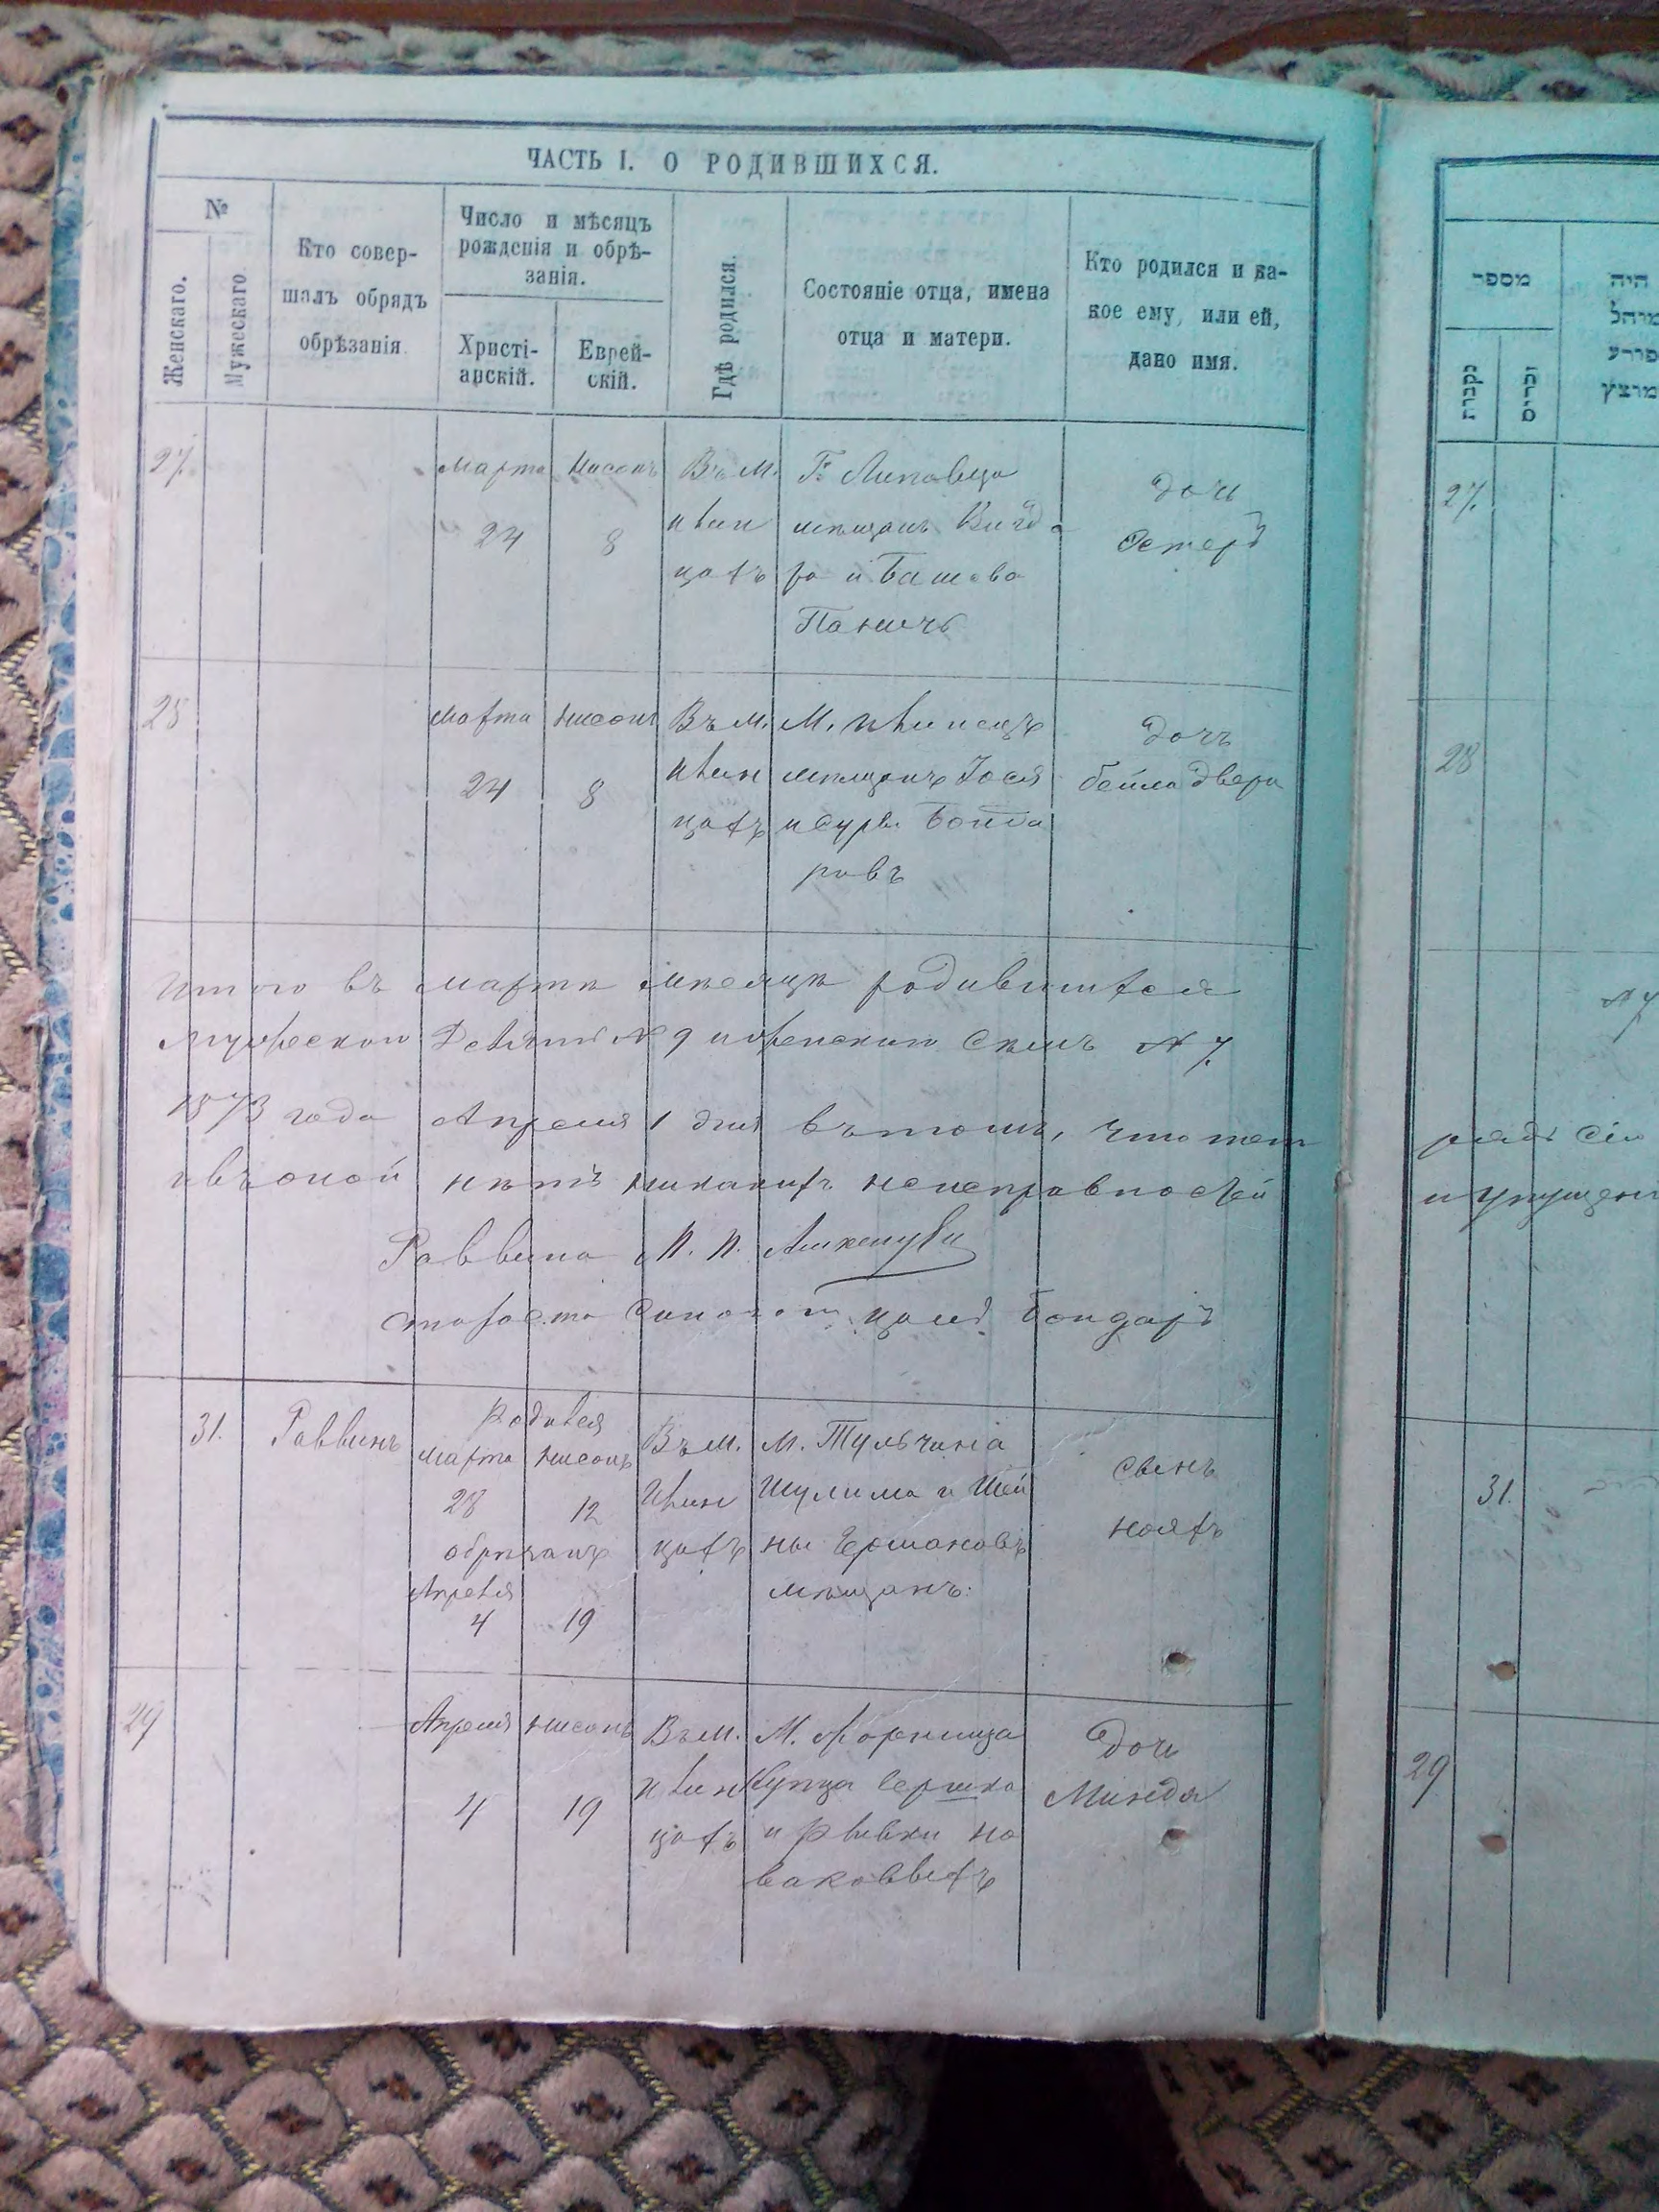 ЧАСТЬ I. О РОДИВШИХСЯ.
№
Женскаго.
Мужескаго
Кто совер-
шалъ обрядъ
обрѣзанія.
Число и мѣсяцъ
рожденія и обрѣ-
занія.
Христі-
анскій.
Еврей-
скій.
Гдѣ родился.
Состояніе отца, имена
отца и матери.
Кто родился и ка-
кое ему, или ей,
дано имя.
27.
Марта
24
Нисонъ
8
Въ м.
цахъ
Г. Липовца
мѣщанъ
ра и Башева
Паничъ
дочь
Эстеръ
28
Марта
24
Нисонъ
8
Въ м.
цахъ
М.
мѣщанъ Іося
и Суры Бонда
ровъ
дочь
Бейла Двера
Итого въ мартѣ мѣсяцѣ родившихся
мужескаго Девять № 9 и женскаго Семь № 7.
1873 года Апреля 1 дня въ томъ, что мет
въ оной нѣтъ никакихъ неисправностей
Раввина
староста Бондаръ
31.
Раввинъ
Родился
марта
28
Нисонъ
12
обрѣзанъ
Апреля
4
19
Въ м.
цахъ
М. Тульчина
Шулима и Шей
ны Германовъ
мѣщанъ.
сынъ
29
Апреля
4
Нисонъ
19
Въ м.
цахъ
М.
Купца Гершка
и Рывки Но
ваковыхъ
дочь
Миндя
מספר
נקבות
זכרים
היה
מוהל
פורע
מוצץ
27.
28
№ 7
рическ сію
и упущені
31.
29